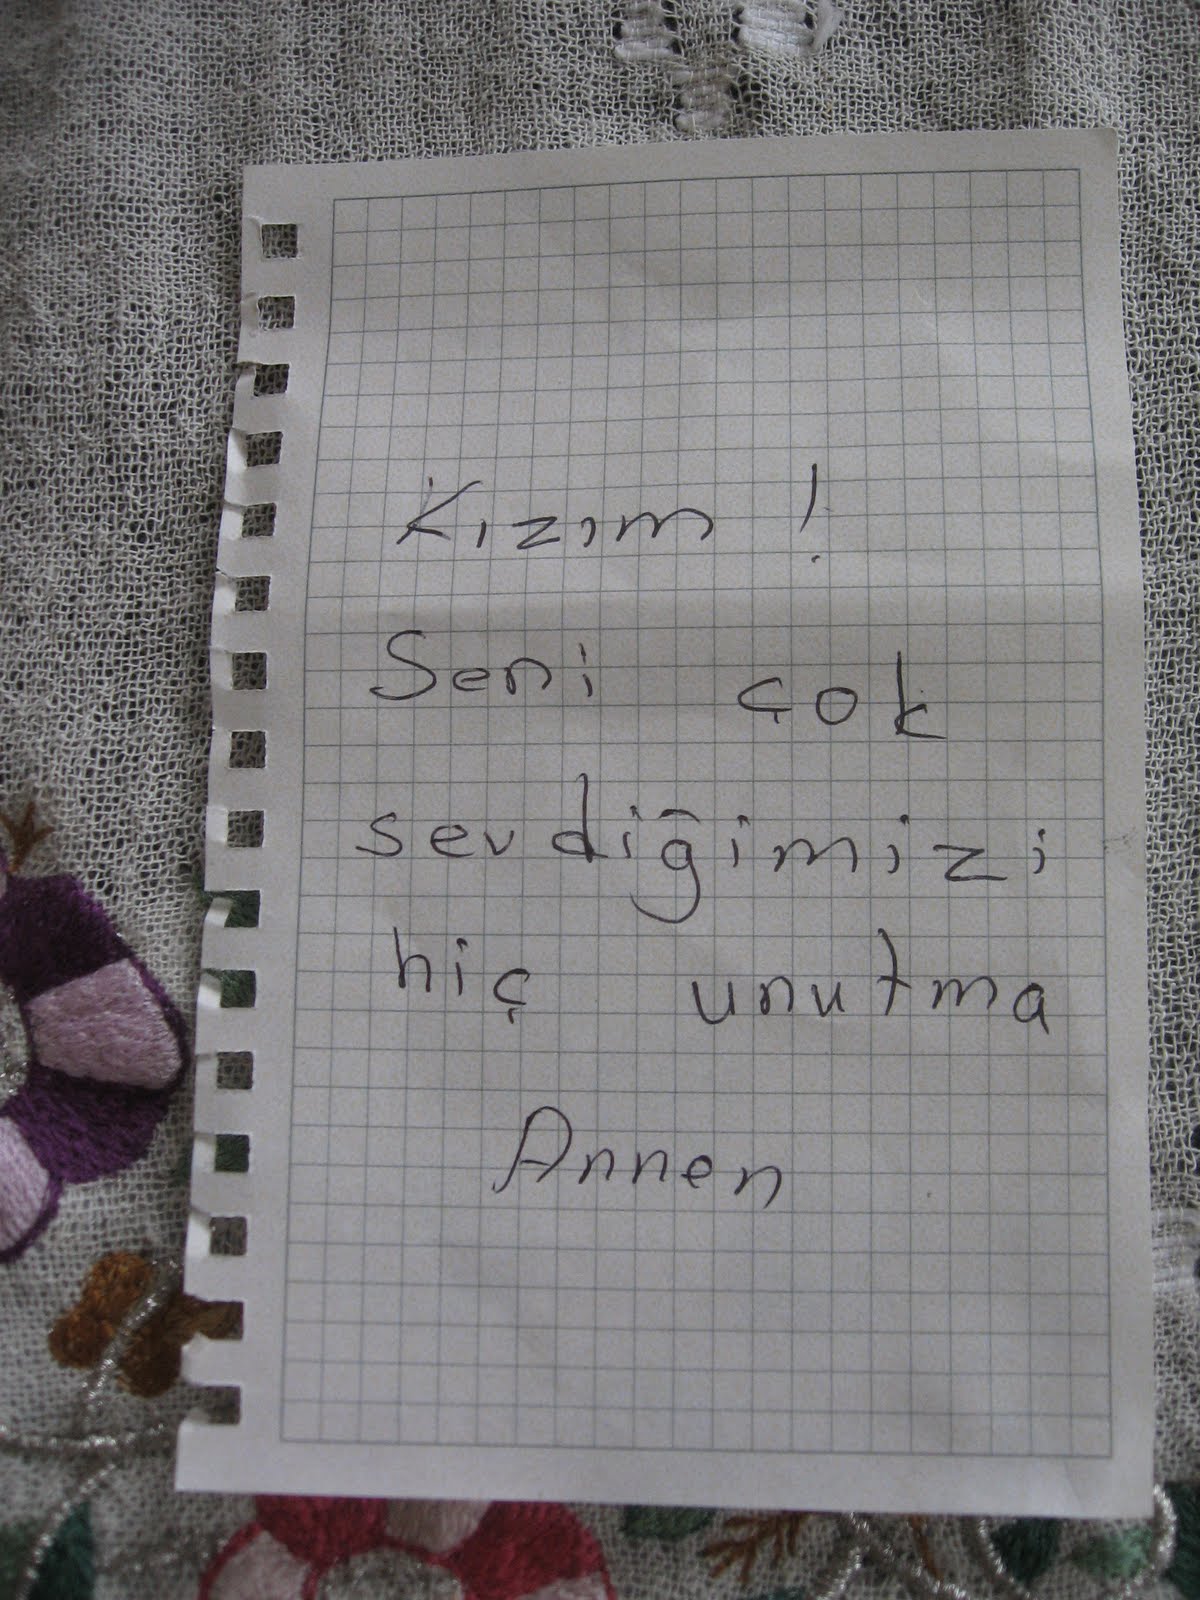 Kızım !
Seni çok
sevdiğimizi
hiç unutma
Annen